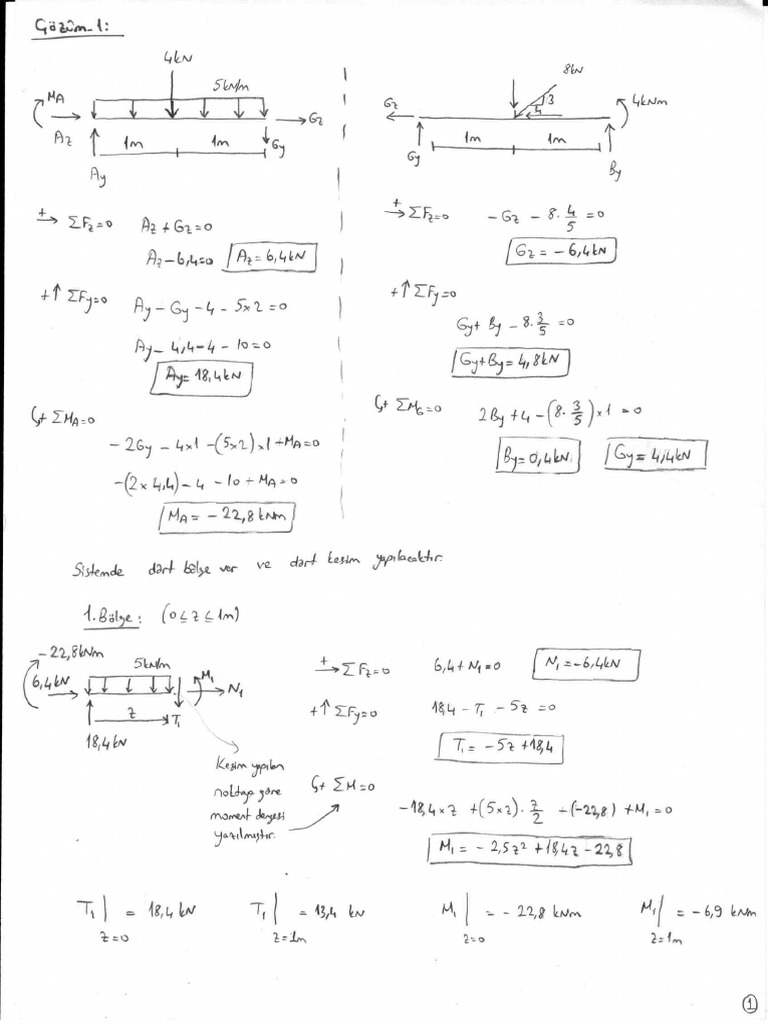 Çözüm-1:
4kN
5kN/m
MA
Az
Ay
1m
1m
Gz
Gy
Gz
Gy
8kN
3
4
4kNm
1m
1m
By
+→ ΣFz=0 Az + Gz = 0
Az - 6,4=0 Az = 6,4kN
+↑ ΣFy=0 Ay - Gy - 4 - 5x2 = 0
Ay - 4,4 - 4 - 10 = 0
Ay = 18,4kN
↶+ ΣMA=0
- 2Gy - 4x1 - (5x2)x1 + MA = 0
-(2x4,4) - 4 - 10 + MA = 0
MA = - 22,8 kNm
+→ ΣFz=0 - Gz - 8.4/5 = 0
Gz = - 6,4kN
+↑ ΣFy=0
Gy + By - 8.3/5 = 0
Gy+By = 4,8kN
↶+ ΣMG=0 2By + 4 - (8.3/5)x1 = 0
By = 0,4kN Gy = 4,4kN
Sistemde dört bölge var ve dört kesim yapılacaktır.
1.Bölge: (0≤z≤1m)
-22,8kNm
5kN/m
6,4kN
M1
N1
z
T1
18,4kN
Kesim yapılan
noktaya göre
moment dengesi
yazılmıştır.
+→ ΣFz=0 6,4+N1=0 N1=-6,4kN
+↑ ΣFy=0 18,4 - T1 - 5z = 0
T1 = -5z + 18,4
↶+ ΣM=0
-18,4xz + (5xz).z/2 + (-22,8) + M1 = 0
M1 = - 2,5z² + 18,4z - 22,8
T1|z=0 = 18,4 kN T1|z=1m = 13,4 kN M1|z=0 = - 22,8 kNm M1|z=1m = - 6,9 kNm
1